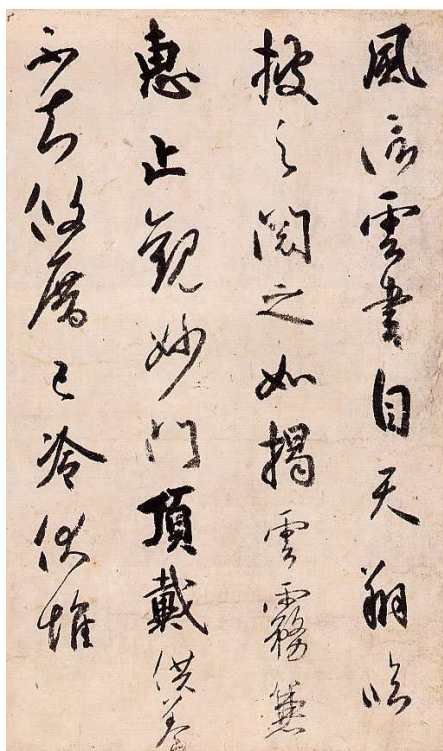 風信雲書自天翔臨
披之閲之如揭雲霧兼
惠止觀妙門頂戴供養
不知攸厝已冷伏惟